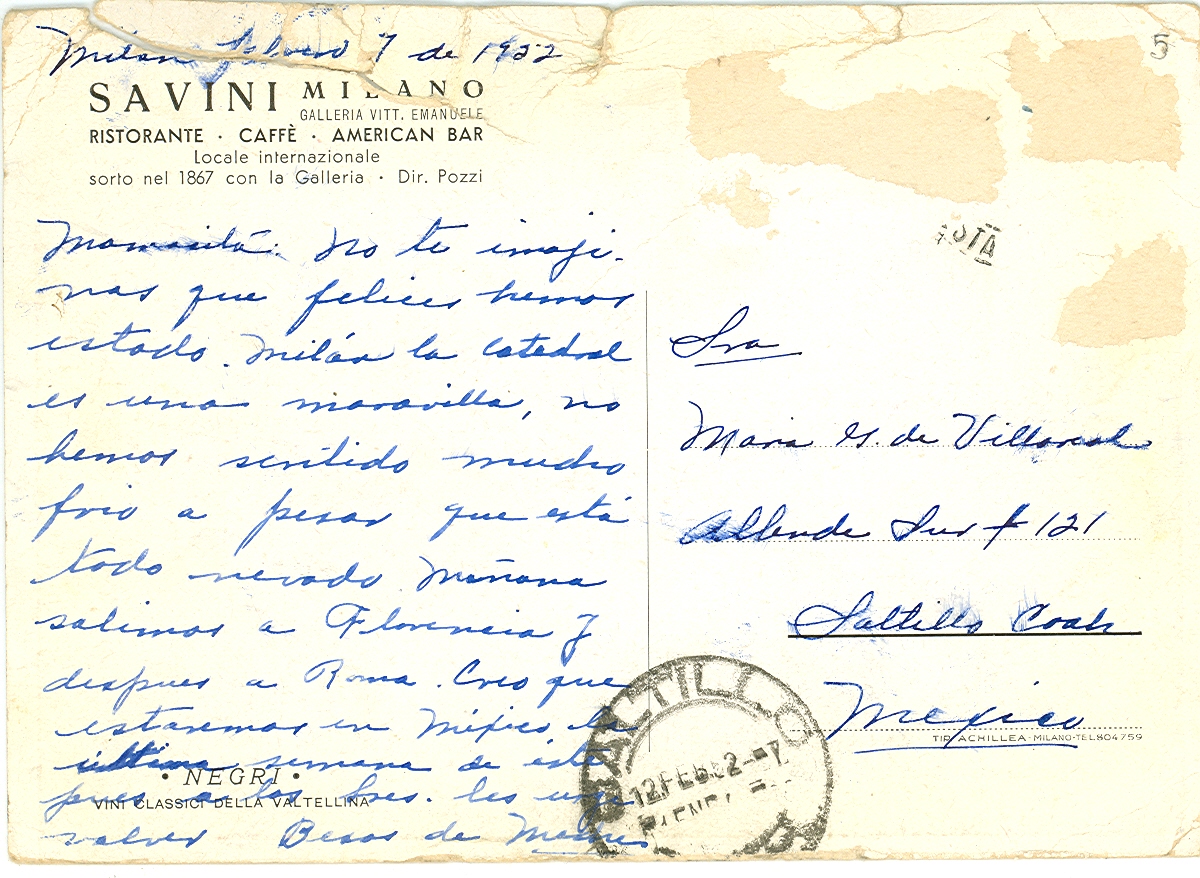 Milan febrero 7 de 1952
SAVINI MILANO
GALLERIA VITT. EMANUELE
RISTORANTE · CAFFÈ · AMERICAN BAR
Locale internazionale
sorto nel 1867 con la Galleria · Dir. Pozzi
Mamacita: No te imagi-
nas que felices hemos
estado. Milán la catedral
es una maravilla, no
hemos sentido mucho
frio a pesar que está
todo nevado. Mañana
salimos a Florencia y
despues a Roma. Creo que
estaremos en México la
última semana de éste
pues a los Sres. les urge
volver Besos de
· NEGRI ·
VINI CLASSICI DELLA VALTELLINA
5
Sra
Maria G. de Villareal
Allende Sur # 121
Saltillo Coah
Mexico
TIP. ACHILLEA - MILANO - TEL. 804759
SALTILLO
12 FEB